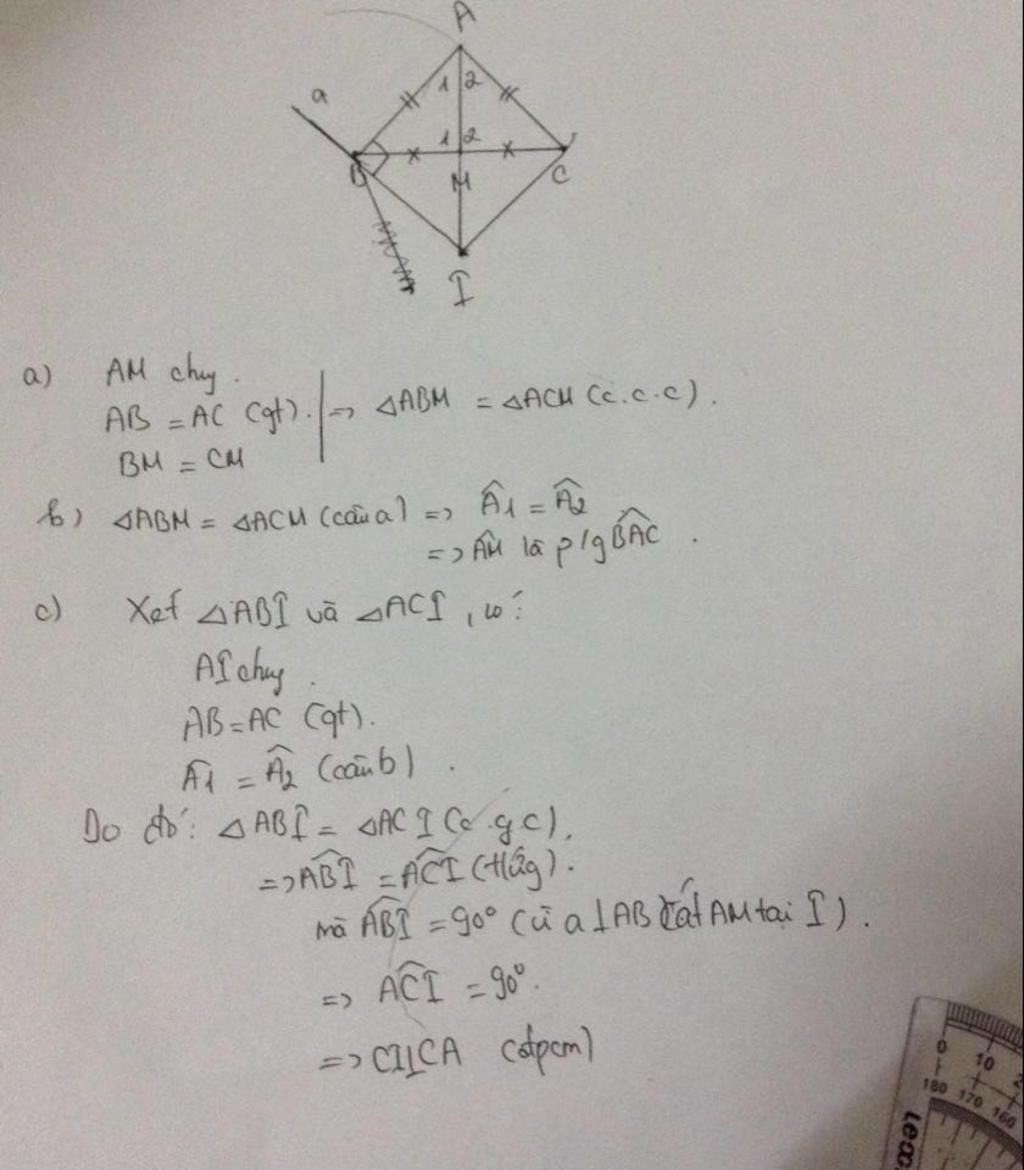 A
a
1 2
1 2
B
M
C
I
a) AM chug.
AB = AC (gt). => △ABM = △ACM (c.c.c).
BM = CM
b) △ABM = △ACM (câu a) => Â1 = Â2
=> AM là p/g BAC.
c) Xét △ABI và △ACI, có:
AI chug.
AB = AC (gt).
Â1 = Â2 (câu b).
Do đó: △ABI = △ACI (c.g.c).
=> ABI = ACI (t/ứg).
mà ABI = 90° (vì a ⊥ AB cắt AM tại I).
=> ACI = 90°.
=> CI ⊥ CA (đpcm)
0 10
180 170 160